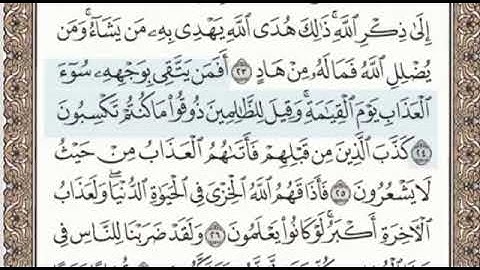 إِلَىٰ ذِكْرِ ٱللَّهِ ۚ ذَٰلِكَ هُدَى ٱللَّهِ يَهْدِى بِهِۦ مَن يَشَآءُ ۚ وَمَن
يُضْلِلِ ٱللَّهُ فَمَا لَهُۥ مِنْ هَادٍ ٢٣ أَفَمَن يَتَّقِى بِوَجْهِهِۦ سُوٓءَ
ٱلْعَذَابِ يَوْمَ ٱلْقِيَٰمَةِ ۚ وَقِيلَ لِلظَّٰلِمِينَ ذُوقُوا۟ مَا كُنتُمْ تَكْسِبُونَ
٢٤ كَذَّبَ ٱلَّذِينَ مِن قَبْلِهِمْ فَأَتَىٰهُمُ ٱلْعَذَابُ مِنْ حَيْثُ
لَا يَشْعُرُونَ ٢٥ فَأَذَاقَهُمُ ٱللَّهُ ٱلْخِزْىَ فِى ٱلْحَيَوٰةِ ٱلدُّنْيَا ۖ وَلَعَذَابُ
ٱلْـَٔاخِرَةِ أَكْبَرُ ۚ لَوْ كَانُوا۟ يَعْلَمُونَ ٢٦ وَلَقَدْ ضَرَبْنَا لِلنَّاسِ فِى